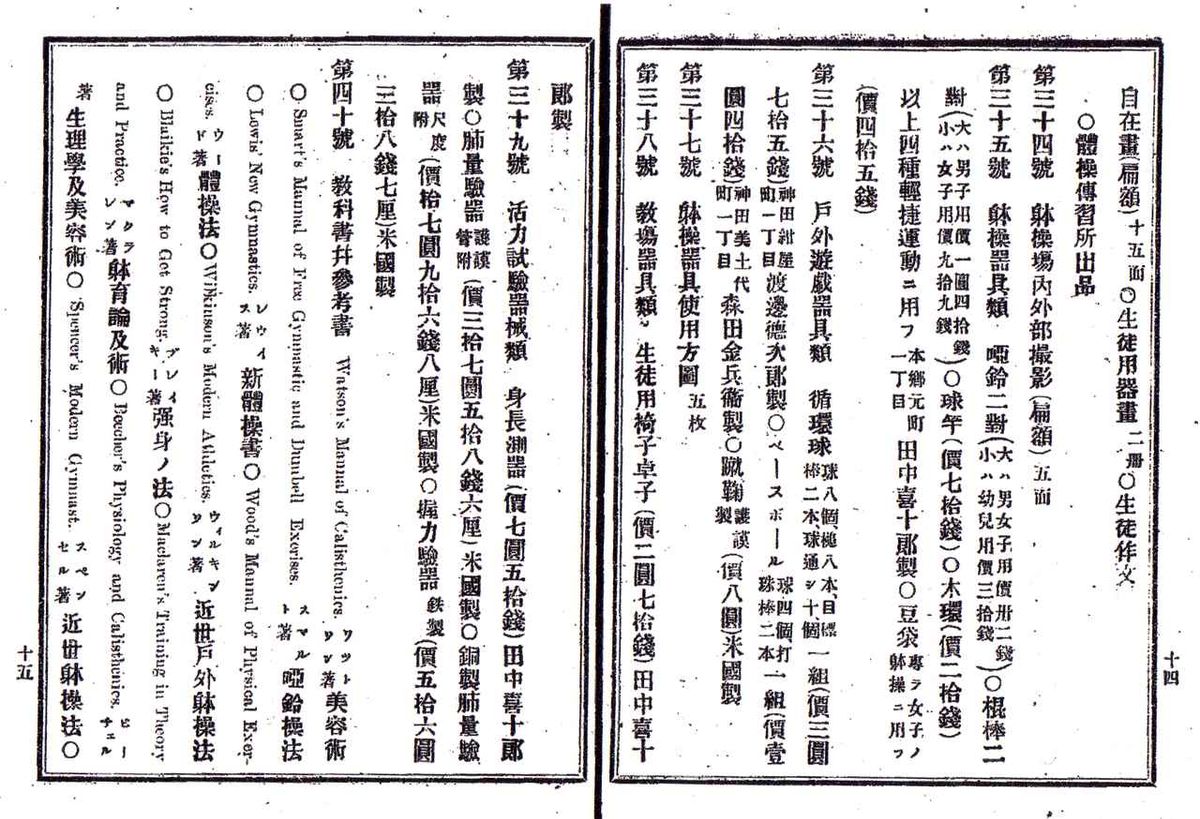 自在畫(扁額)十五面〇生徒用器畫二册〇〇生徒作文
〇體操傳習所出品
第三十四號 躰操場內外部撮影(扁額)五面
第三十五號 躰操器具類 啞鈴二對(大ハ男女子用價卅二錢小ハ幼兒用價三拾錢)〇棍棒二
對(大ハ男子用價一圓四拾錢小ハ女子用價九拾九錢)〇球竿(價七拾錢)〇〇木環(價二拾錢)
以上四種輕捷運動ニ用フ本鄉元町一丁目田中喜十郎製〇豆袋專ラ女子ノ躰操ニ用フ
(價四拾五錢)
第三十六號 戶外遊戲器具類 循環球球八個、槌八本、目標棒二本、球通シ十個一組(價三圓
七拾五錢)神田紺屋町一丁目渡邊德次郎製〇ベースボール球四個、打球棒二本一組(價壹
圓四拾錢)神田美土代町一丁目森田金兵衞製〇蹴鞠護謨製(價八圓)米國製
第三十七號 躰操器具使用方圖五枚
第三十八號 敎塲器具類 生徒用椅子卓子(價二圓七拾錢)田中喜十
十四
郎製
第三十九號 活力試驗器械類 身長測器(價七圓五拾錢)田中喜十郎
製〇肺量驗器護謨管附(價三拾七圓五拾八錢六厘)米國製〇銅製肺量驗
器尺度附(價拾七圓九拾六錢八厘)米國製〇握力驗器鉄製(價五拾六圓
三拾八錢七厘)米國製
第四十號 敎科書幷參考書 Watson's Mannal of Calisthenics. ワットソン著美容術
〇Smart's Mannal of Free Gympastic and Dumbell Exerises. スマルト著啞鈴操法
〇Lewis' New Gymnastics. レウィス著新體操書〇Wood's Mannal of Physical Exer-
cises. ウード著體操法〇Wilkinson's Modern Athletics. ウィルキンソン著近世戶外躰操法
〇Blaikie's How to Get Strong. ブレィキー著强身ノ法〇Maclaren's Training in Theory
and Practice. マクラレン著躰育論及術〇Beecher's Physiology and Calisthenics. ビーチェル
著生理學及美容術〇Spencer's Modern Gymnast. スペンセル著近世躰操法〇
十五